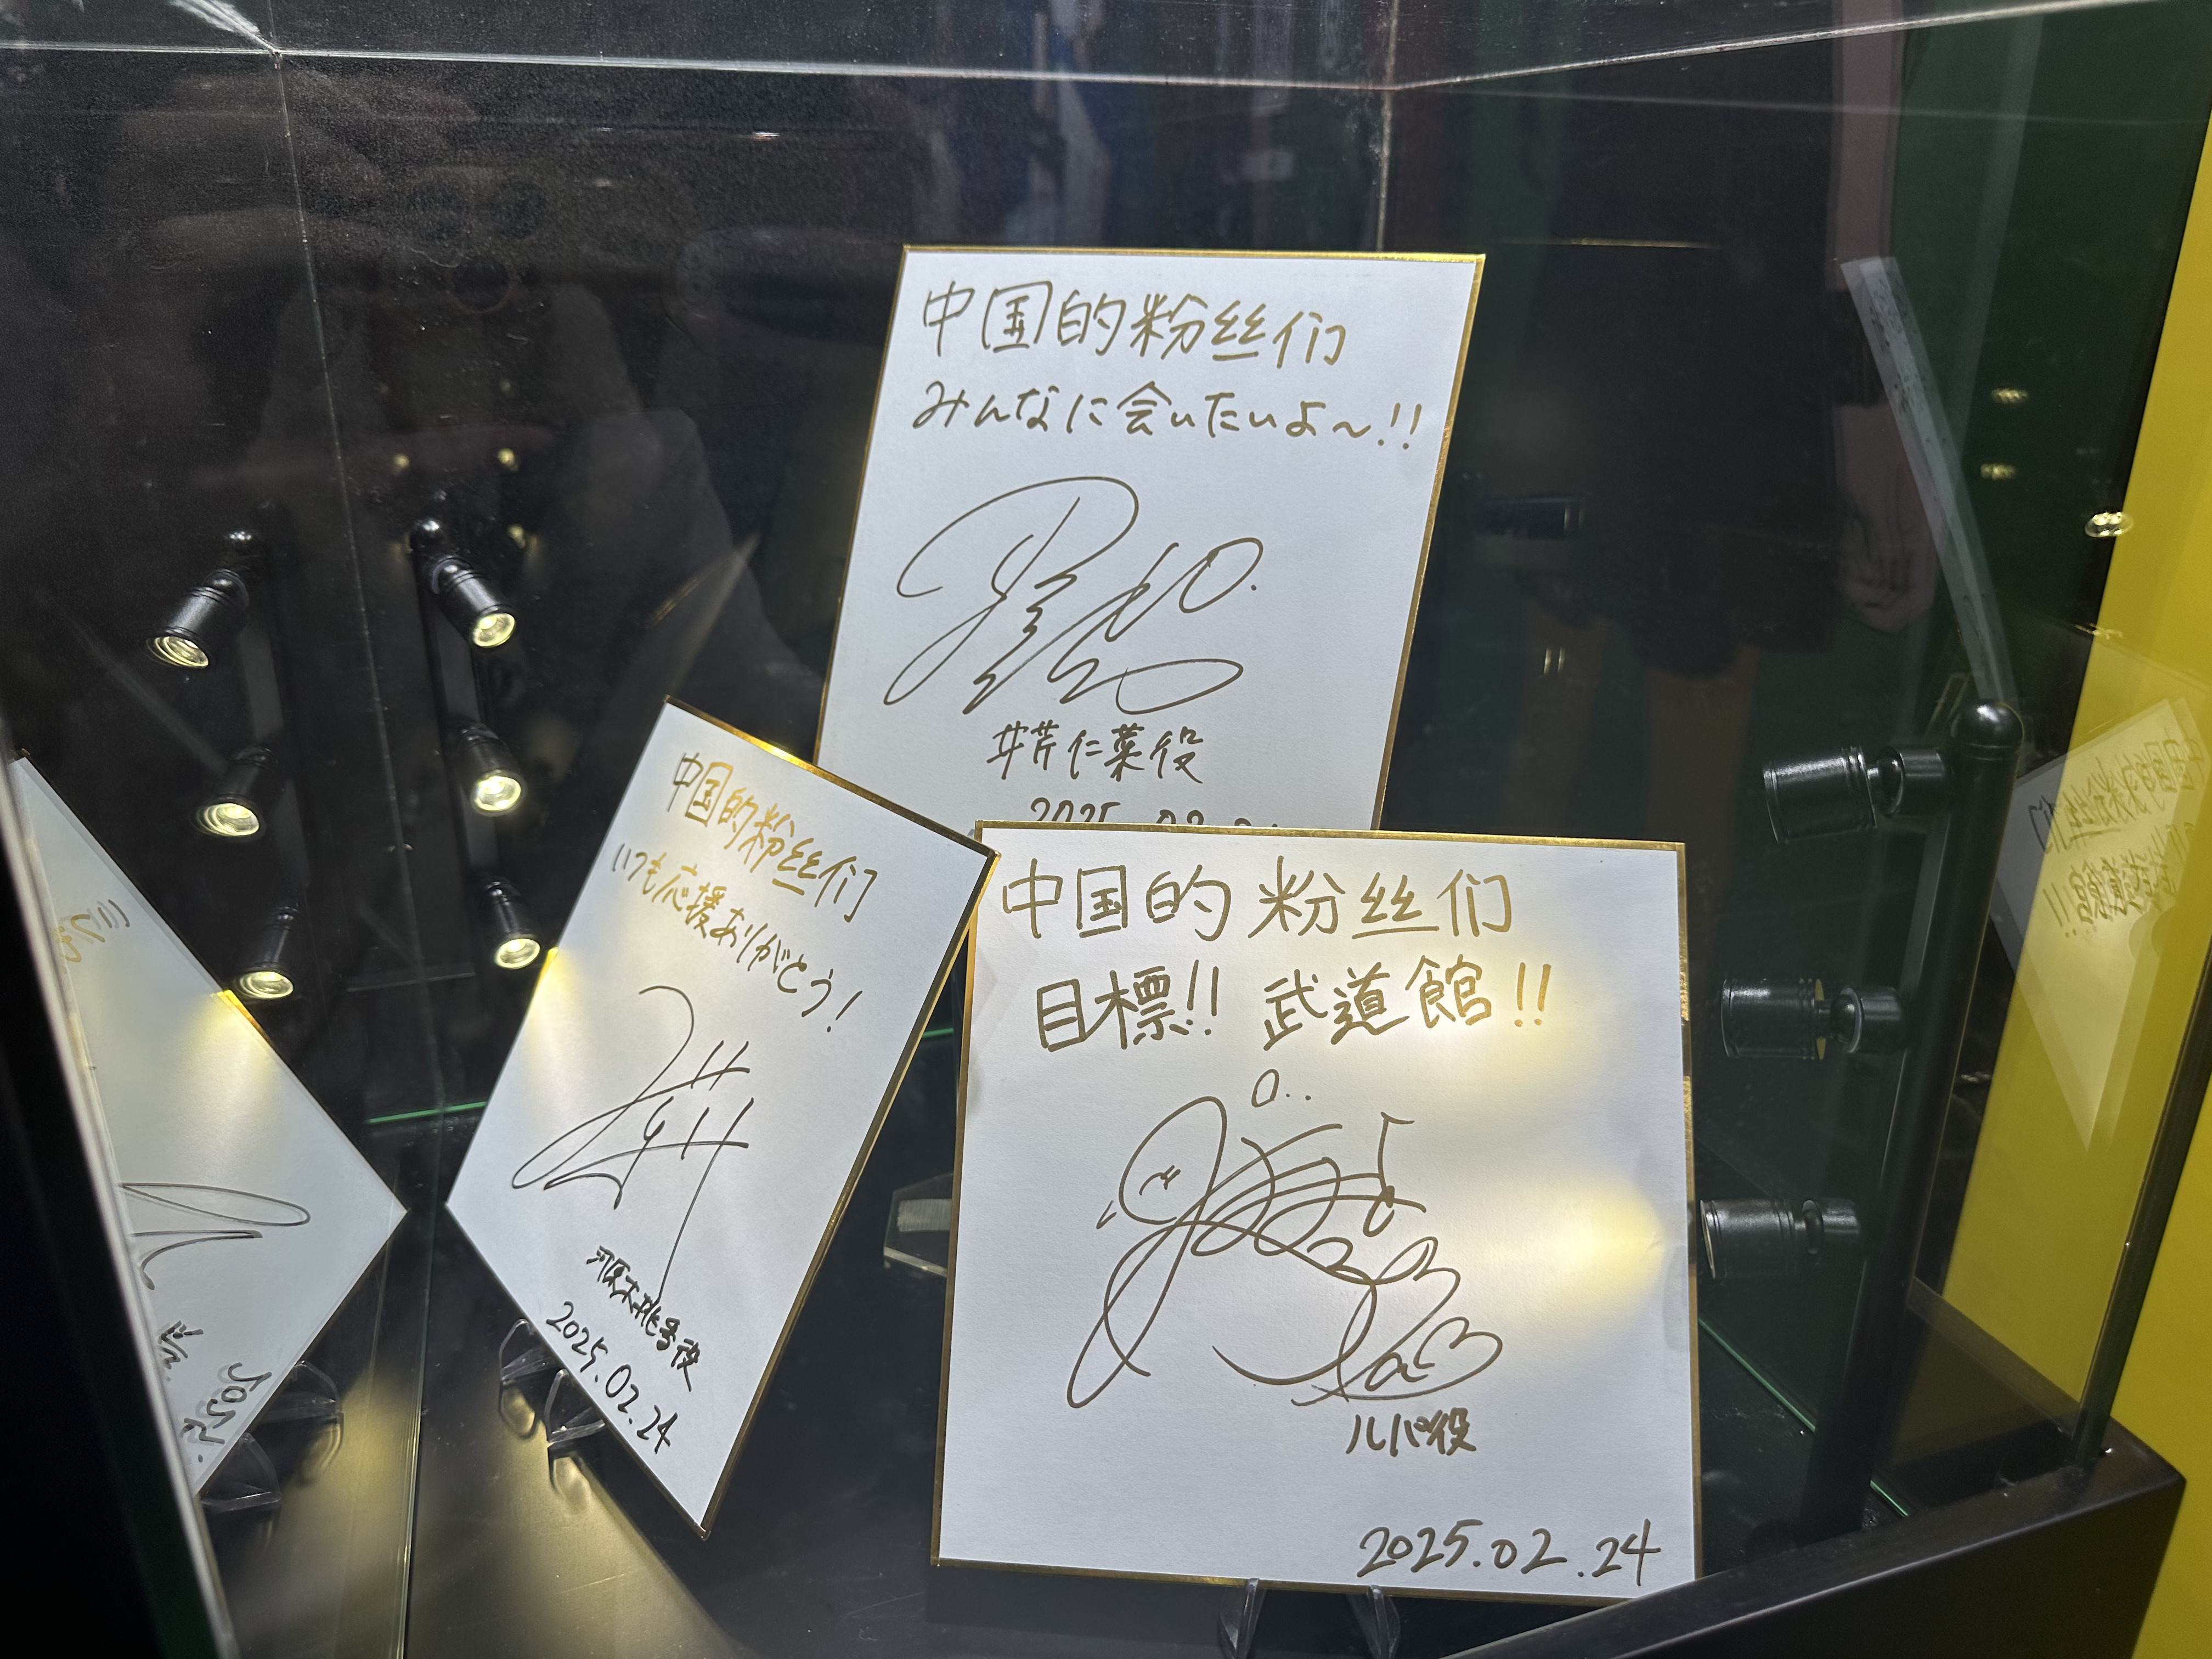 中国的粉丝们
みんなに会いたいよ〜!!
井芹仁菜役
中国的粉丝们
いつも応援ありがとう!
河原木桃香役
2025.02.24
中国的粉丝们
目標!! 武道館!!
ルパ役
2025.02.24